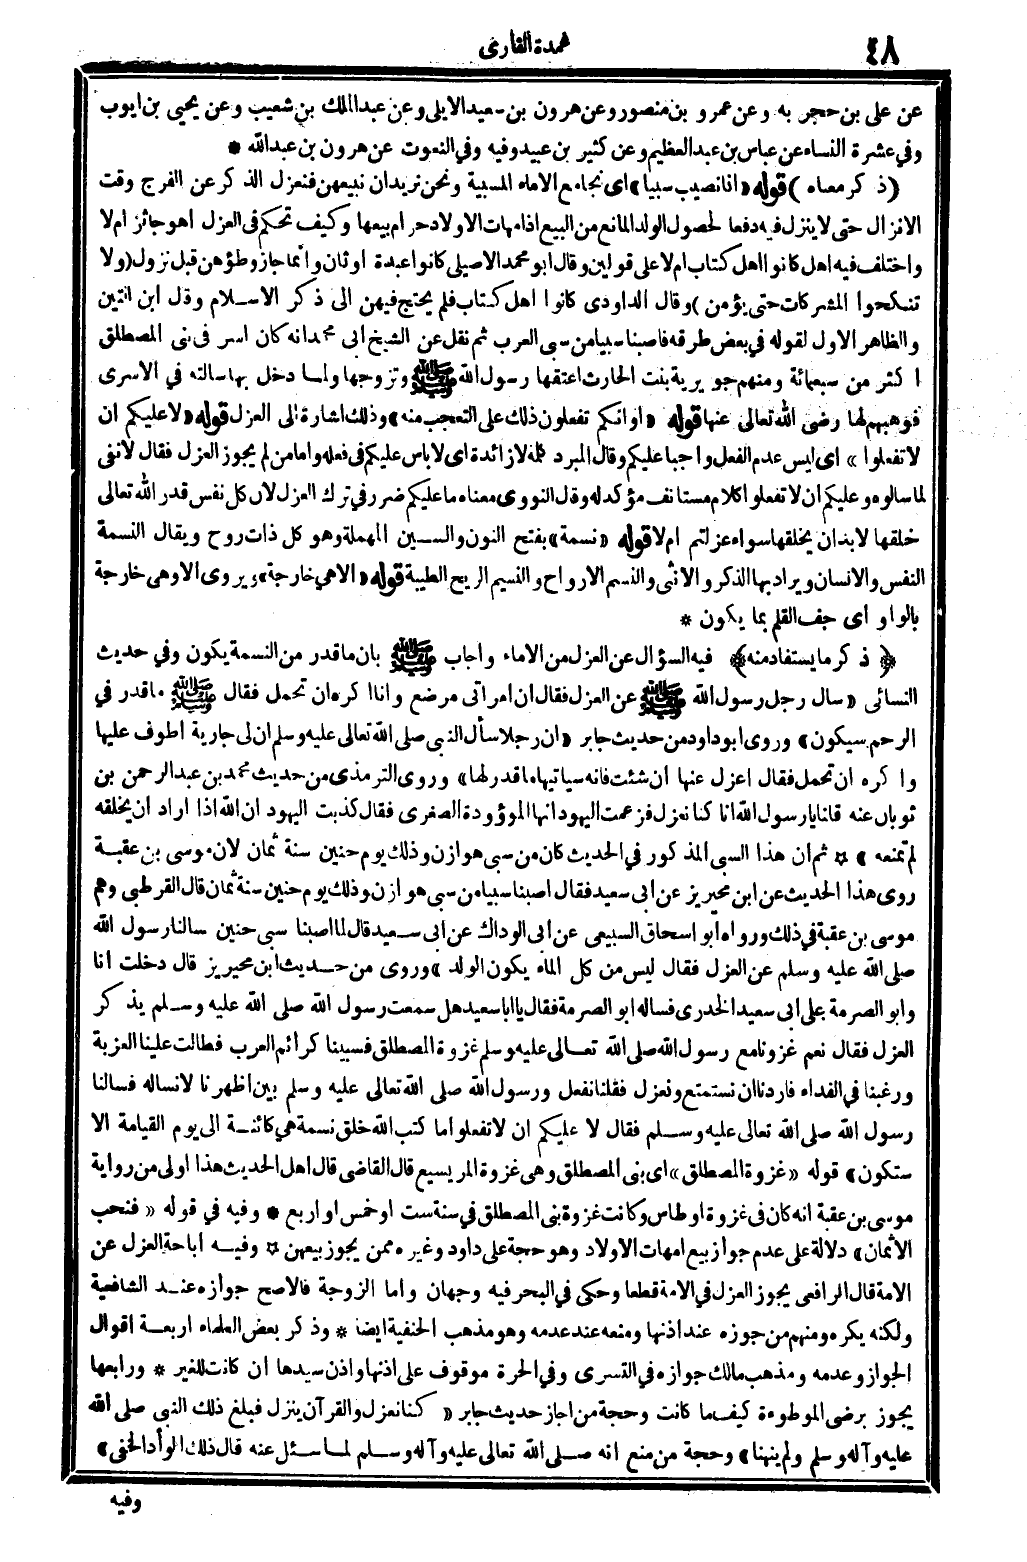 ٤٨
عمدة القارى
عن على بن حجر به وعن عمرو بن منصور وعن هرون بن سعيد الايلى وعن عبد الملك بن شعيب وعن يحيى بن ايوب
وفى عشرة النساء عن عباس بن عبد العظيم وعن كثير بن عبيد وفيه وفى النعوت عن هرون بن عبد الله *
(ذكر معناه) قوله «انا نصيب سبيا» اى نجامع الاماء المسبية ونحن نريد ان نبيعهن فنعزل الذكر عن الفرج وقت
الانزال حتى لا ينزل فيه دفعا لحصول الولد المانع من البيع اذ امهات الاولاد حرام بيعها وكيف تحكم فى العزل اهو جائز ام لا
واختلف فيه اهل كانوا اهل كتاب ام لا على قولين وقال ابو محمد الاصيلى كانوا عبدة اوثان وانما جاز وطؤهن قبل نزول (ولا
تنكحوا المشركات حتى يؤمن) وقال الداودى كانوا اهل كتاب فلم يحتج فيهن الى ذكر الاسلام وقل ابن التين
والظاهر الاول لقوله فى بعض طرقه فاصبنا سبيا من سبى العرب ثم نقل عن الشيخ ابى محمد انه كان اسر فى بنى المصطلق
اكثر من سبعمائة ومنهم جويرية بنت الحارث اعتقها رسول الله ﷺ وتزوجها ولما دخل بها سالته فى الاسرى
فوهبهم لها رضى الله تعالى عنها قوله «او انكم تفعلون ذلك على التعجب منه» وذلك اشارة الى العزل قوله «لا عليكم ان
لا تفعلوا» اى ليس عدم الفعل واجبا عليكم وقال المبرد كلمة لا زائدة اى لا باس عليكم فى فعله واما من لم يجوز العزل فقال لا نفى
لما سالوه وعليكم ان لا تفعلوا كلام مستانف مؤكد له وقل النووى معناه ما عليكم ضرر فى ترك العزل لان كل نفس قدر الله تعالى
خلقها لا بد ان يخلقها سواء عزلتم ام لا قوله «نسمة» بفتح النون والسين المهملة وهو كل ذات روح ويقال النسمة
النفس والانسان ويراد بها الذكر والانثى والنسم الارواح والنسيم الريح الطيبة قوله «الا هى خارجة» ويروى الا وهى خارجة
بالواو اى جف القلم بما يكون *
﴿ذكر ما يستفاد منه﴾ فيه السؤال عن العزل من الاماء واجاب ﷺ بان ما قدر من النسمة يكون وفى حديث
النسائى «سال رجل رسول الله ﷺ عن العزل فقال ان امراتى مرضع وانا اكره ان تحمل فقال ﷺ ما قدر فى
الرحم سيكون» وروى ابو داود من حديث جابر «ان رجلا سأل النبى صلى الله تعالى عليه وسلم ان لى جارية اطوف عليها
واكره ان تحمل فقال اعزل عنها ان شئت فانه سياتيها ما قدر لها» وروى الترمذى من حديث محمد بن عبد الرحمن بن
ثوبان عنه قلنا يا رسول الله انا كنا نعزل فزعمت اليهود انها الموؤودة الصغرى فقال كذبت اليهود ان الله اذا اراد ان يخلقه
لم تمنعه» ☆ ثم ان هذا السبى المذكور فى الحديث كان من سبى هوازن وذلك يوم حنين سنة ثمان لان موسى بن عقبة
روى هذا الحديث عن ابن محيريز عن ابى سعيد فقال اصبنا سبيا من سبى هوازن وذلك يوم حنين سنة ثمان قال القرطبى وهم
موسى بن عقبة فى ذلك ورواه ابو اسحاق السبيعى عن ابى الوداك عن ابى سعيد قال لما اصبنا سبى حنين سالنا رسول الله
صلى الله عليه وسلم عن العزل فقال ليس من كل الماء يكون الولد» وروى من حديث ابن محيريز قال دخلت انا
وابو الصرمة على ابى سعيد الخدرى فساله ابو الصرمة فقال يا ابا سعيد هل سمعت رسول الله صلى الله عليه وسلم يذكر
العزل فقال نعم غزونا مع رسول الله صلى الله تعالى عليه وسلم غزوة المصطلق فسبينا كرائم العرب فطالت علينا العزبة
ورغبنا فى الفداء فاردنا ان نستمتع ونعزل فقلنا نفعل ورسول الله صلى الله تعالى عليه وسلم بين اظهرنا لا نساله فسالنا
رسول الله صلى الله تعالى عليه وسلم فقال لا عليكم ان لا تفعلوا ما كتب الله خلق نسمة هى كائنة الى يوم القيامة الا
ستكون» قوله «غزوة المصطلق» اى بنى المصطلق وهى غزوة المريسيع قال القاضى قال اهل الحديث هذا اولى من رواية
موسى بن عقبة انه كان فى غزوة اوطاس وكانت غزوة بنى المصطلق فى سنة ست او خمس او اربع * وفيه فى قوله «فنحب
الأثمان» دلالة على عدم جواز بيع امهات الاولاد وهو حجة على داود وغيره ممن يجوز بيعهن ☆ وفيه اباحة العزل عن
الامة قال الرافعى يجوز العزل فى الامة قطعا وحكى فى البحر فيه وجهان واما الزوجة فالاصح جوازه عند الشافعية
ولكنه يكره ومنهم من جوزه عند اذنها ومنعه عند عدمه وهو مذهب الحنفية ايضا * وذكر بعض العلماء اربعة اقوال
الجواز وعدمه ومذهب مالك جوازه فى التسرى وفى الحرة موقوف على اذنها واذن سيدها ان كانت للغير * ورابعها
يجوز برضى الموطوءة كيف ما كانت وحجة من اجاز حديث جابر «كنا نعزل والقرآن ينزل فبلغ ذلك النبى صلى الله
عليه وآله وسلم ولم ينهنا» وحجة من منع انه صلى الله تعالى عليه وآله وسلم لما سئل عنه قال ذلك الوأد الخفى»
وفيه